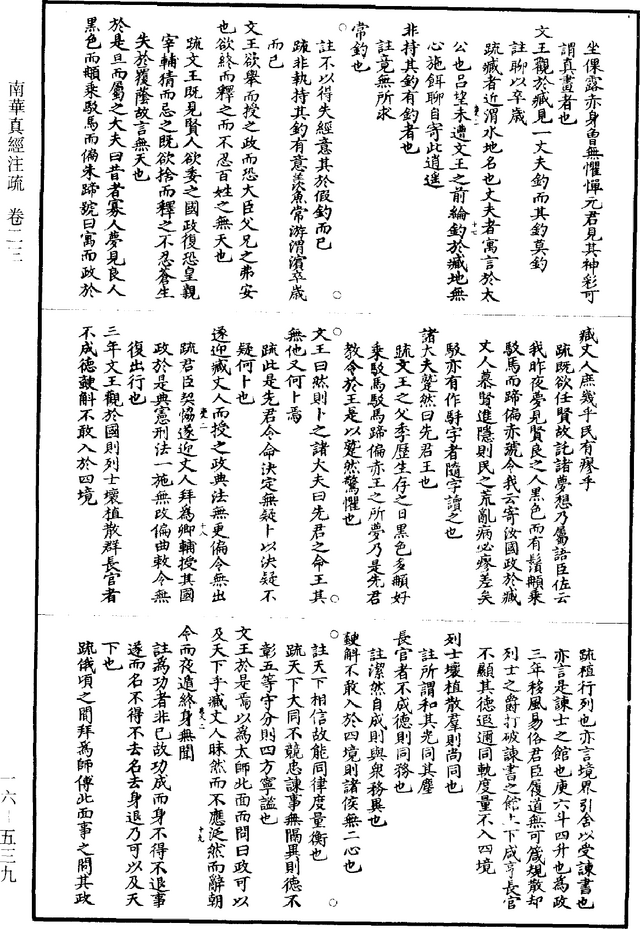 坐倮露赤身曾無懼憚元君見其神彩可
謂真畫者也
文王觀於臧見一丈夫釣而其釣莫釣
註聊以卒歲
疏臧者近渭水地名也丈夫者寓言於太
公也呂望未遭文王之前綸釣於臧地無
心施餌聊自寄此逍遙
非持其釣有釣者也
註竟無所求
常釣也
註不以得失經意其於假釣而已
疏非執持其釣有意羨魚常游渭濱卒歲
而已
文王欲舉而授之政而恐大臣父兄之弗安
也欲終而釋之而不忍百姓之無天也
疏文王既見賢人欲委之國政復恐皇親
宰輔猜而忌之既欲捨而釋之不忍蒼生
失於覆蔭故言無天也
於是旦而屬之大夫曰昔者寡人夢見良人
黑色而䫇乘駁馬而偏朱蹄號曰寓而政於
臧丈人庶幾乎民有瘳乎
疏既欲任賢故託諸夢想乃屬語臣佐云
我昨夜夢見賢良之人黑色而有鬚䫇乘
駁馬而蹄偏赤號令我云寄汝國政於臧
丈人慕賢進隱則民之荒亂病必瘳差矣
駁亦有作騂字者隨字讀之也
諸大夫蹵然曰先君王也
疏文王之父季歷生存之日黑色多䫇好
乘駁馬駁馬蹄偏赤王之所夢乃是先君
教令於王是以蹵然驚懼也
文王曰然則卜之諸大夫曰先君之命王其
無他又何卜焉
疏此是先君令命決定無疑卜以決疑不
疑何卜也
遂迎臧丈人而授之政典法無更偏令無出
疏君臣契恊遂迎丈人拜為卿輔授其國
政於是典憲刑法一施無改偏曲敕令無
復出行也
三年文王觀於國則列士壞植散群長官者
不成德䤈斛不敢入於四境
疏植行列也亦言境界引舍以受諫書也
亦言是諫士之館也庾六斗四升也為政
三年移風易俗君臣履道無可箴規散却
列士之爵打破諫書之館上下咸亨長官
不顯其德遐邇同軌度量不入四境
列士壞植散羣則尚同也
註所謂和其光同其塵
長官者不成德則同務也
註潔然自成則與眾務異也
䤈斛不敢入於四境則諸侯無二心也
註天下相信故能同律度量衡也
疏天下大同不競忠諫事無隔異則德不
彰五等守分則四方寧謐也
文王於是焉以為太師北面而問曰政可以
及天下乎臧丈人昧然而不應泛然而辭朝
令而夜遁終身無聞
註為功者非已故功成而身不得不退事
遂而名不得不去名去身退乃可以及天
下也
疏俄頃之間拜為師傅北面事之問其政
南華真經注疏　卷二三
一六—五三九